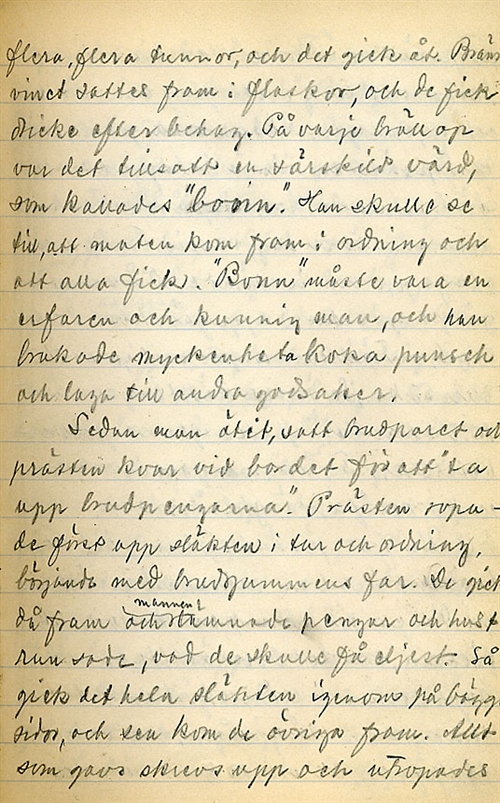 flera, flera tunnor, och det gick åt. Bränn
vinet sattes fram i flaskor, och de fick
dricke efter behag. På varje bröllop
var det tillsatt en särskild värd,
som kallades "bonin". Han skulle se
till, att maten kom fram i ordning och
att alla fick. "Bonin" måste vara en
erfaren och kunnig man, och han
brukade myckenheta koka punsch
och laga till andra godsaker.
Sedan man ätit, satt brudparet och
prästen kvar vid bordet för att "ta
upp brudpengarna". Prästen ropa-
de först upp släkten i tur och ordning,
börjande med brudgummens far. De gick
då fram och mannen lämnade pengar och hust
run sade, vad de skulle få eljest. Så
gick det hela släkten igenom på bägge
sidor, och sen kom de övriga fram. Allt
som gavs skrevs upp och utropades